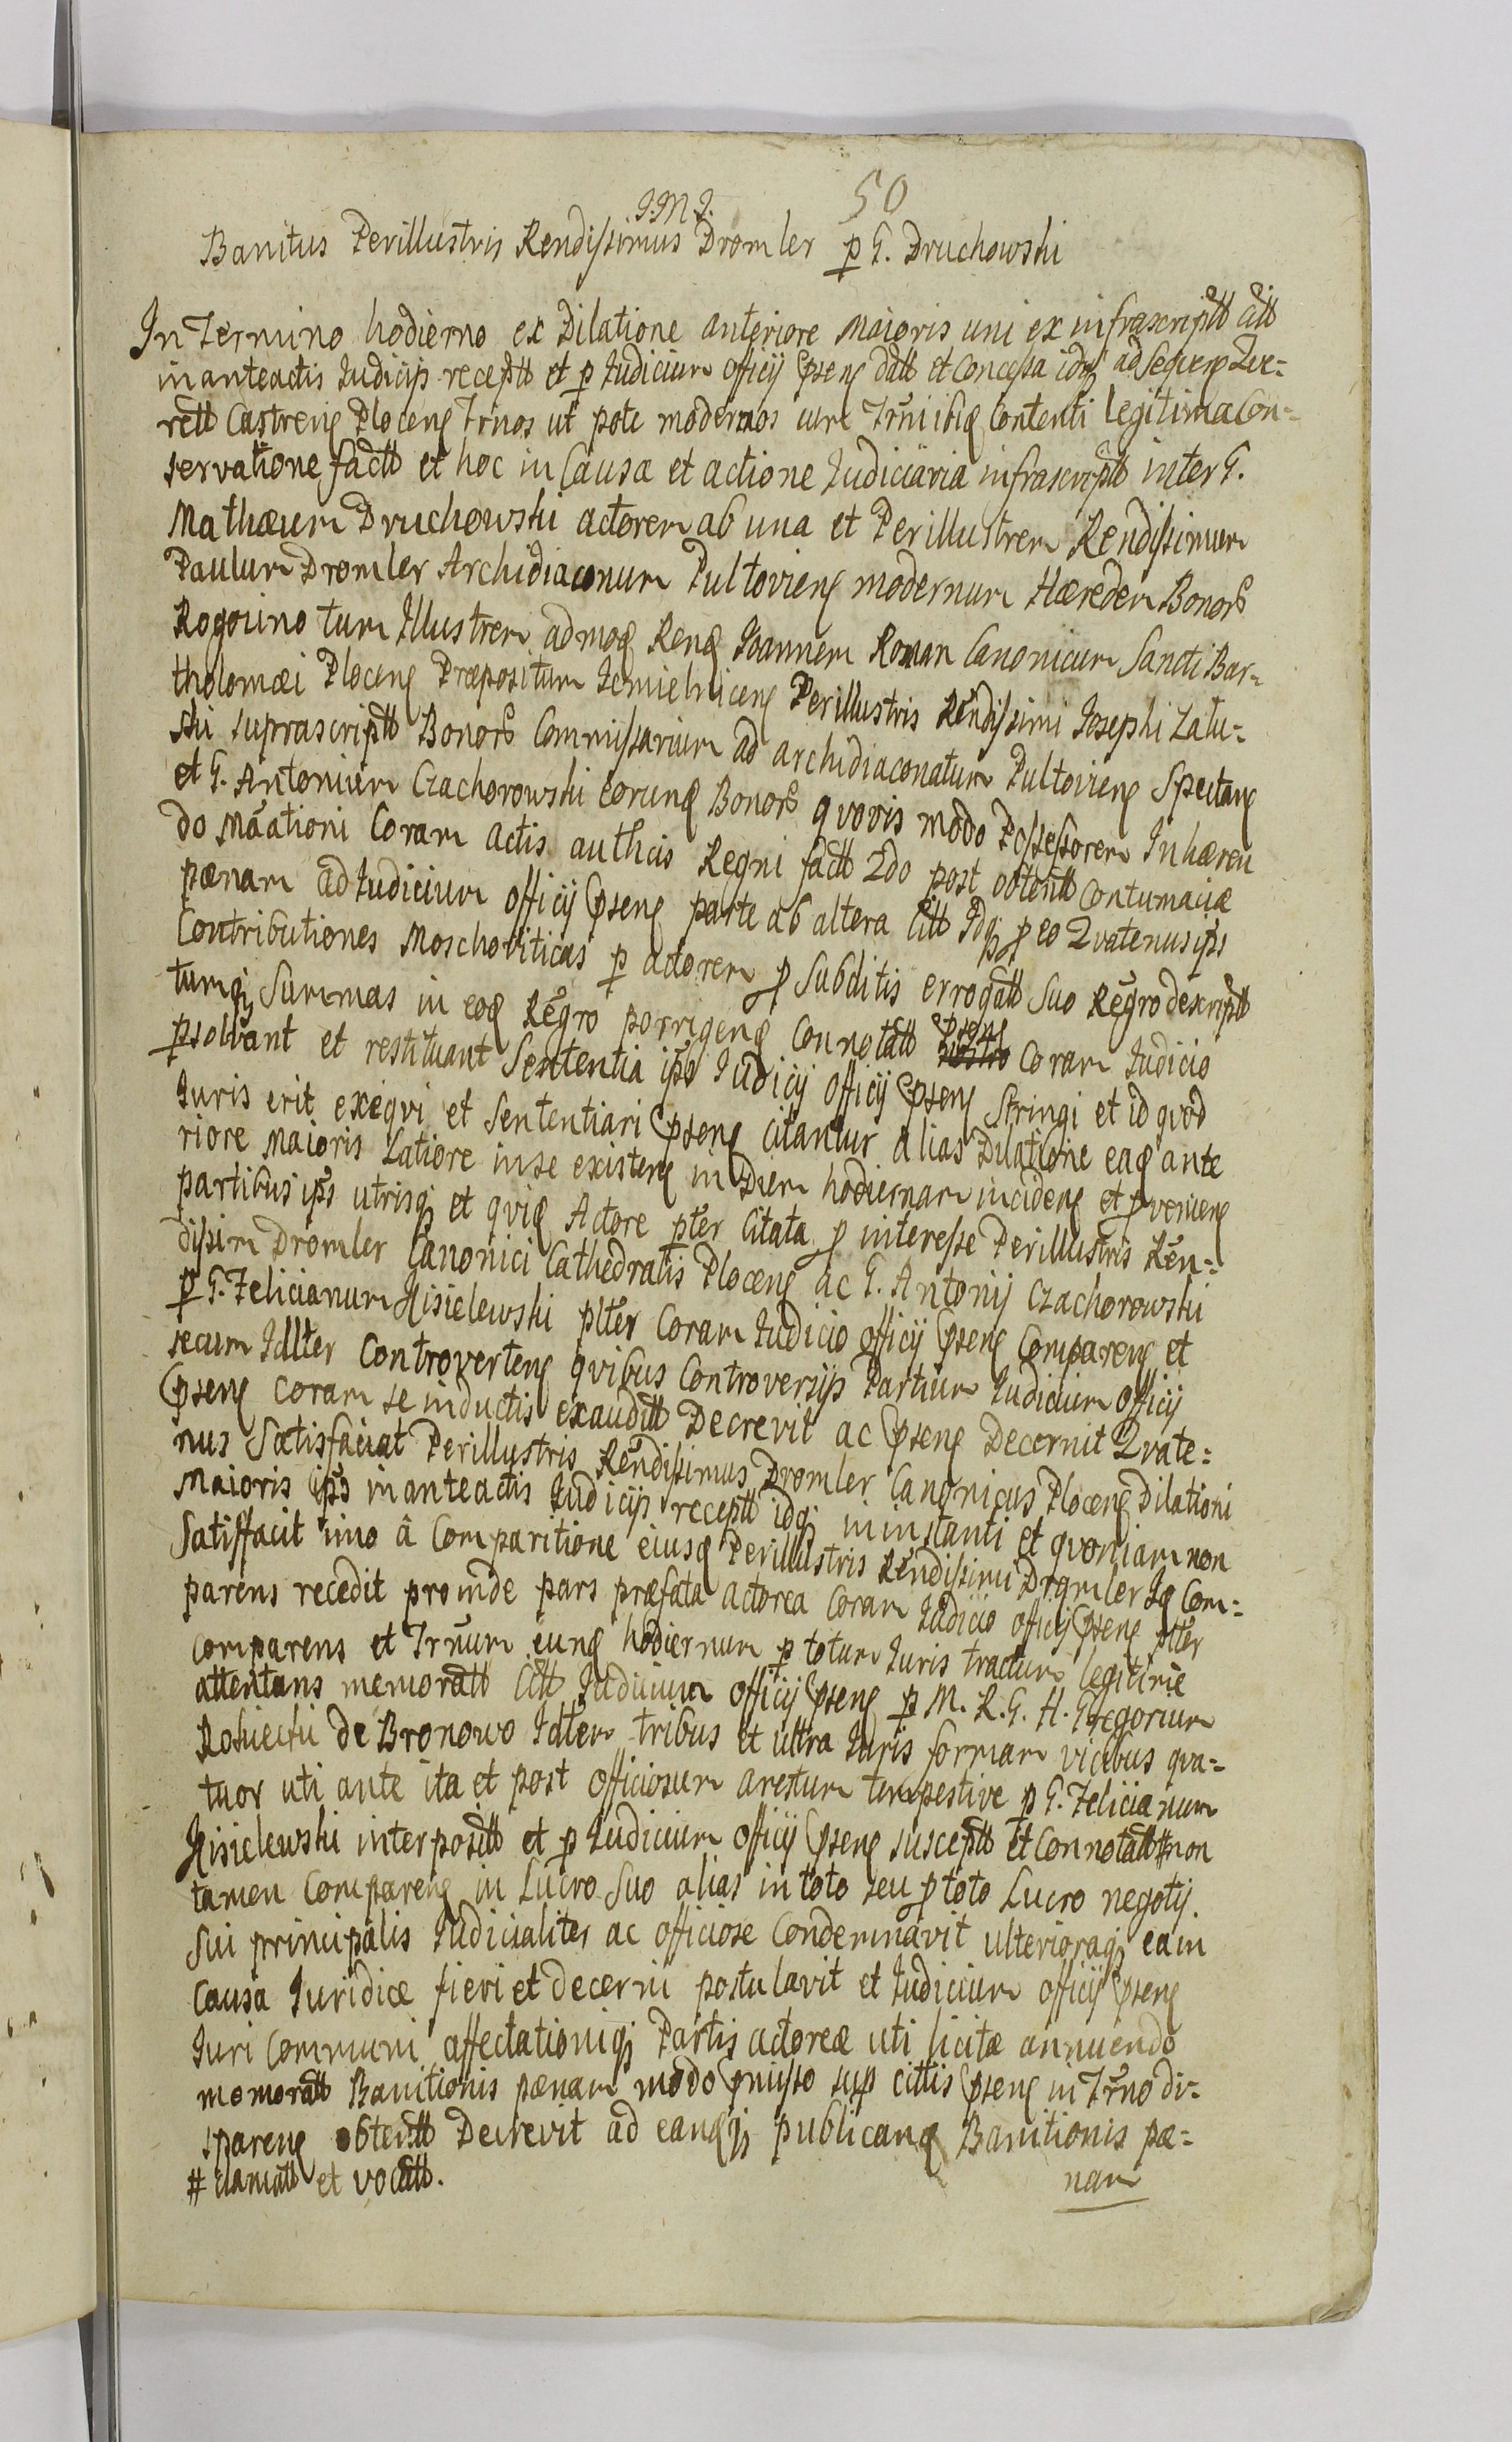 J.M.J.
50
Banitus Perillustris Rendissimus Dromler p G. Druchowski
In Termino hodierno ex Dilatione anteriore Maioris uni ex infrascriptt Citt
in anteactis Iudicijs receptt et p Iudicium Officij Pseng datt et Concessa
rett Castreng Ploceng Trnos ut pote modernos iure Trni Contenti legitima Con-
servatione factt et hoc in Causa et actione Iudiciaria infrascriptt inter G.
Mathæum Druchowski actorem ab una et Perillustrem Rendissimum
Paulum Dromler Archidiaconum Pultovieng modernum Hæredem Bonor
Rogoiino tum Illustrem admod Rend Ioannem Roman Canonicum Sancti Bar-
tholomæi Ploceng Præpositum Iemielniceng Perillustris Rendissimi Iosephi Zalu-
ski suprascriptt Bonor Commissarium ad archidiaconatum Pultovieng Spectang
et G. Antonium Czachorowski eorund Bonor quovis modo Possessorem Inhæren
do Maationi Coram actis authcis Regni factt 2do post obtentt Contumaciæ
pænam ad Iudicium officij Pseng parte ab altera Citt Idq p eo Quatenus ips
Contributiones Moschoviticas p actorem p Subditis errogatt Suo Regro descriptt
tumq Summas in eod Regro porrigend Connotatt Pseng Coram Iudicio
psolvant et restituant Sententia ips Iudicij officij Pseng Stringi et id quod
Iuris erit exeqvi et Sententiari Pseng Citantur alias Dilatione ead ante
riore Maioris Latiore in se existeng in Diem hodiernam incideng et pveniens
partibus ips utrisq et quid Actore pter Citata p interesse Perillustris Ren-
dissim Dromler Canonici Cathedralis Ploceng ac G. Antonij Czachorowski
p G. Felicianum Kisielewski plter Coram Iudicio officij Pseng Compareng et
secum Idlter Controverteng quibus Controversijs Partium Iudicium officij
Pseng coram se inductis exauditt Decrevit ac Pseng Decernit Quate-
nus Satisfaciat Perillustris Rendissimus Dromler Canonicus Ploceng Dilationi
Maioris ips in anteactis Iudicijs receptt idq in instanti et quoniam non
Satisfacit imo â Comparitione eiusd Perillustris Rendissimi Dromler Id Com-
parens recedit proinde pars præfata actorea Coram Iudicio officij Pseng plter
comparens et Trnum eund hodiernum p totum Iuris tractum legitime
attentans memoratt Citt Iudicium officij Pseng p M. R. G. H. Gregorium
de Bronowo Idlter tribus et ultra Iuris formam vicibus qva-
tuor uti ante ita et post officiosum arestum tempestive p G. Felicianum
Kisielewski interpositt et p Iudicium officij Pseng susceptt et Connotatt # non
tamen Compareng in Lucro Suo alias in toto seu p toto Lucro negotij
Sui principalis Iudicialiter ac officiose Condemnavit ulterioraq ea in
Causa Iuridice fieri et decerni postulavit et Iudicium officij Pseng
Iuri Communi affectationiq Partis actoreæ uti licitæ annuendo
memoratt Banitionis pænam modo pmisso sup cittis Pseng in Trno di-
spareng obtentt Decrevit ad eandq publicand Banitionis pæ-
# clamatt et vocatt.
nam